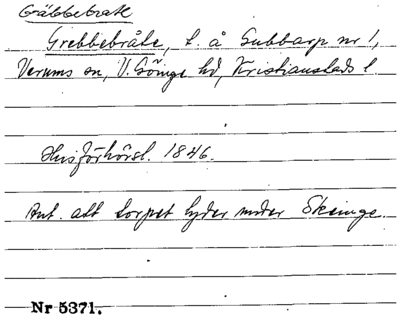 Gräbbebråte
Grebbebråte, t. å Subbarp nr 1,
Verums sn, V. Göinge hd, Kristianstads l.
Husförhörsl. 1846.
Ant. att torpet lyder under Skeinge.
Nr 5371.